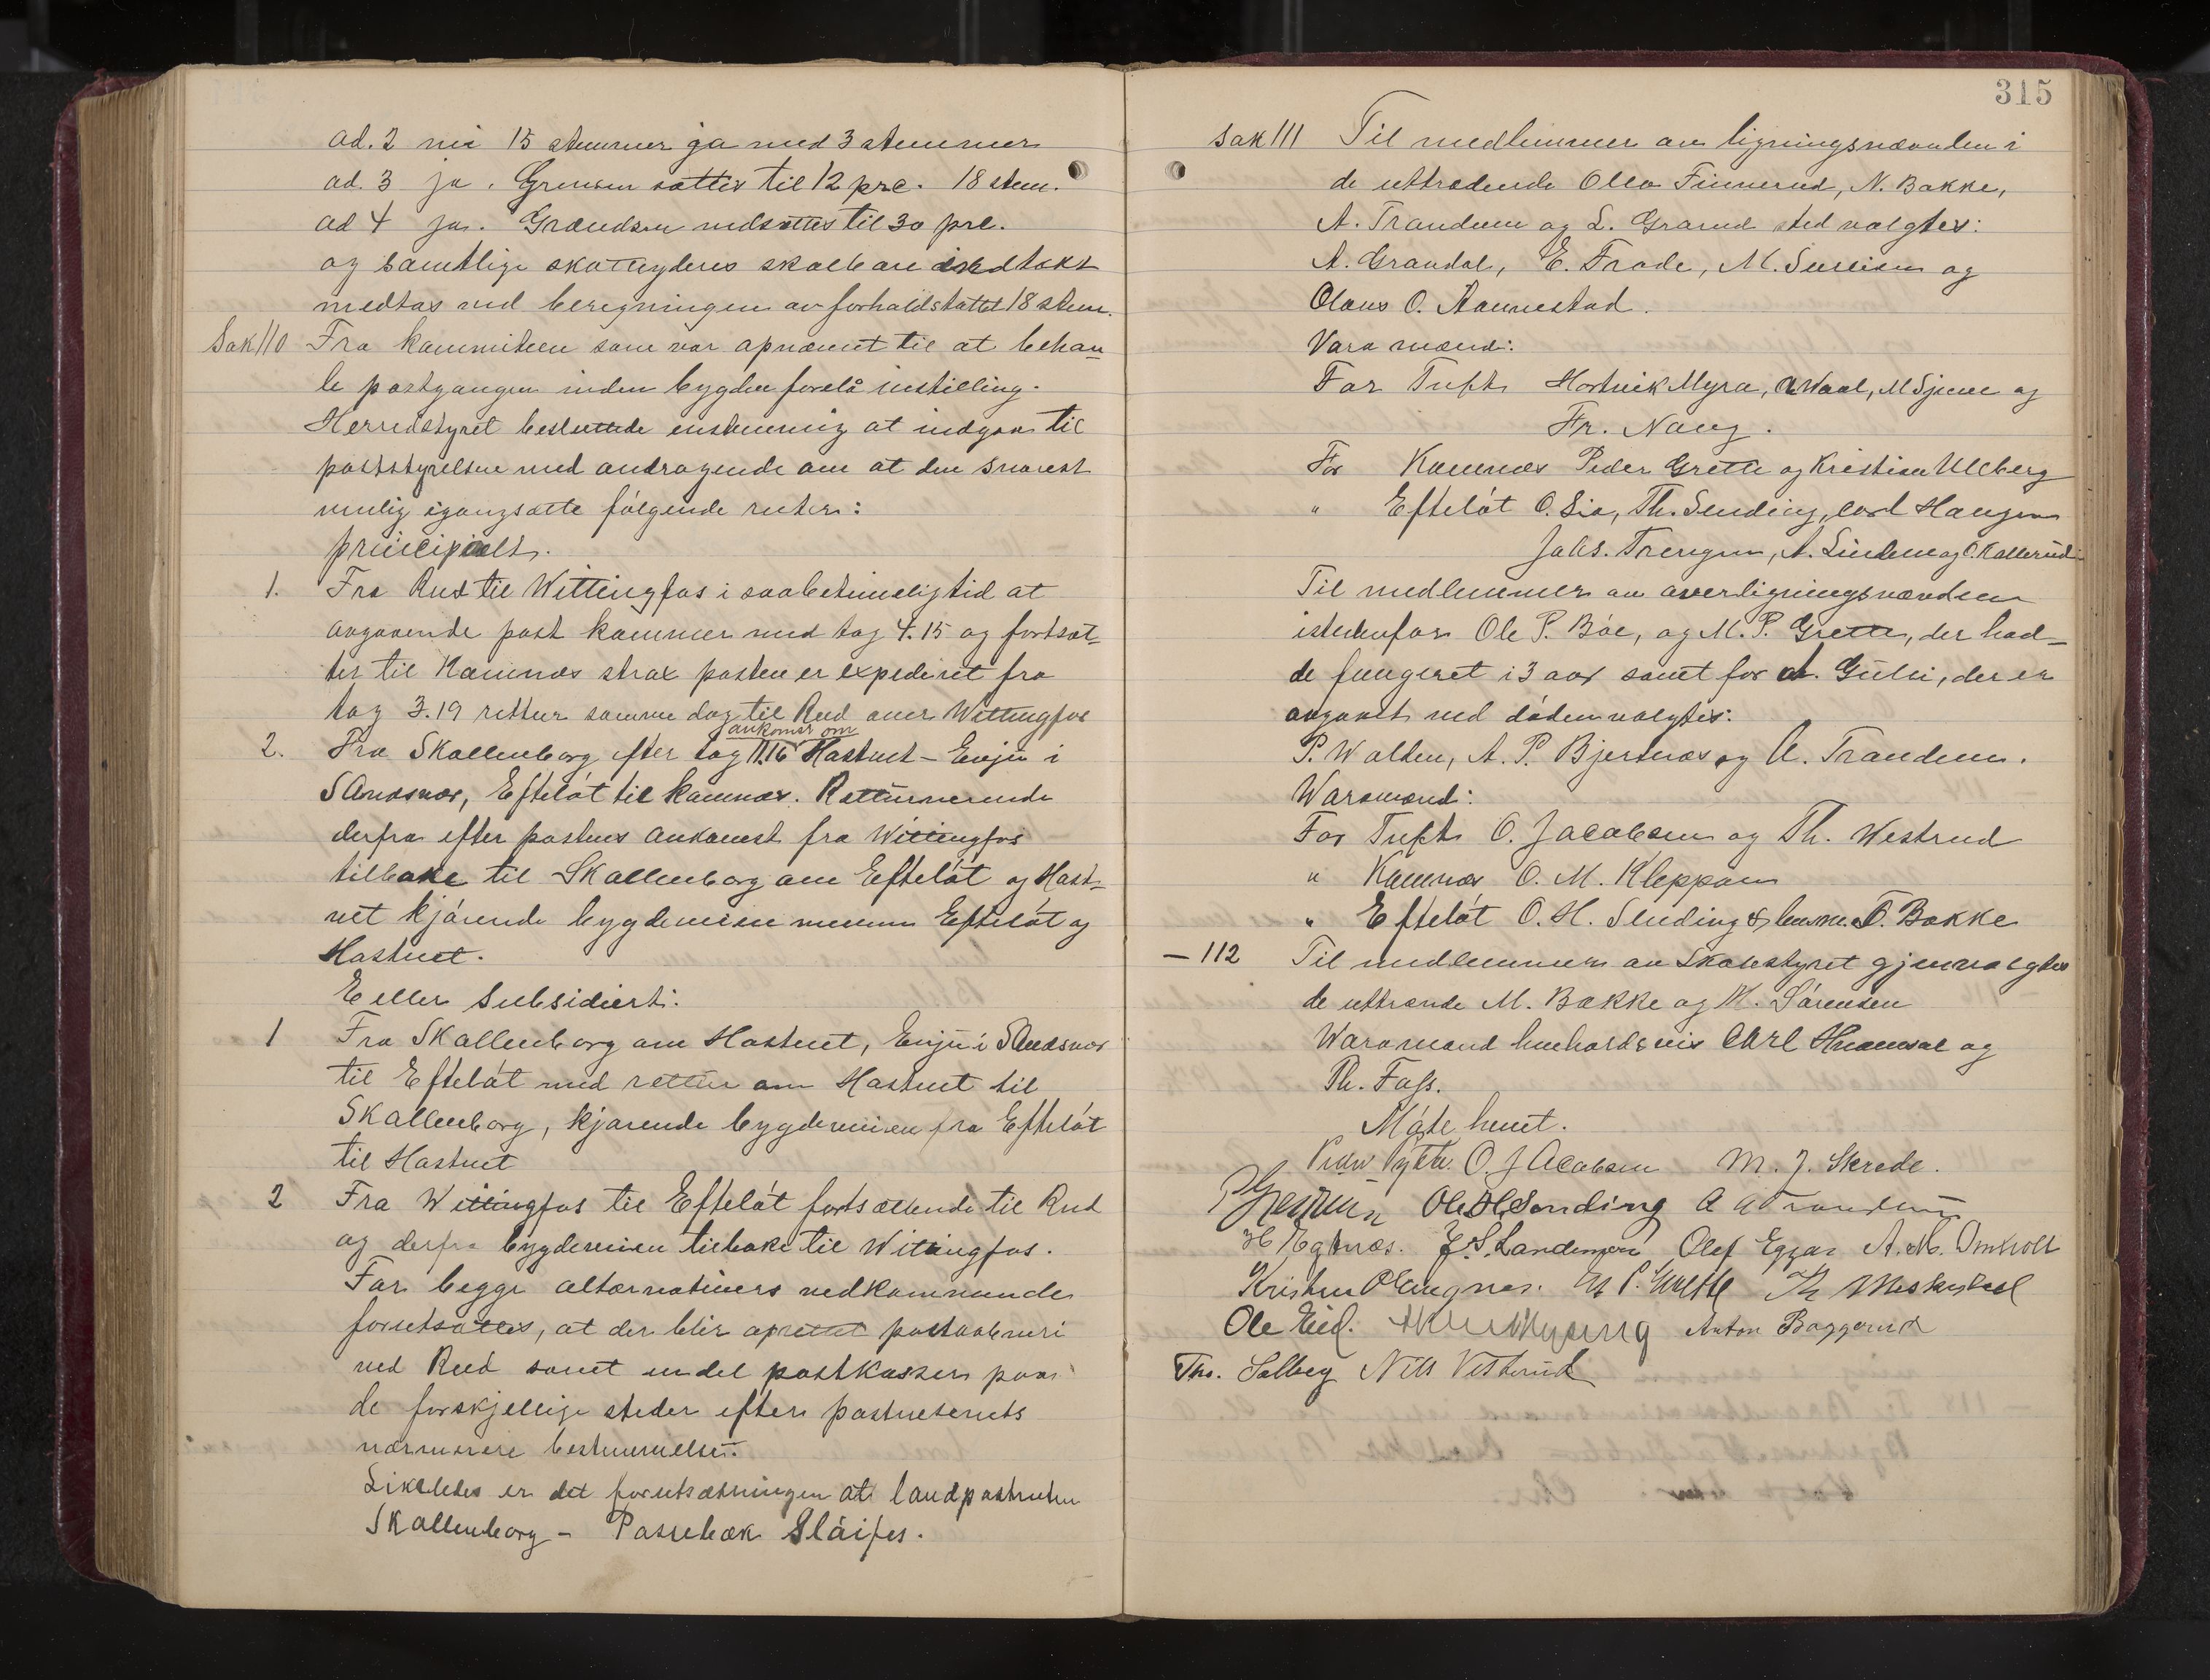 ad. 2 nei 15 stemmer ja med 3 stemmer
ad. 3 ja. Grensen sættes til 12 prc. 18 stem.
ad 4 ja. Grændsen nedsættes til 30 prc.
og samtlige skatteyderes skatbare indtækt
medtas ved beregningen av forholdstallet 18 stem.
Sak 110 Fra kommiteen som var opnævnt til at behan
le postgangen inden bygden forelå instilling.
Herredstyret besluttede enstemmig at indgaa til
poststyrelsen med andragende om at den snarest
mulig igangsætte følgende ruter:
principalt.
1. Fra Rud til Wittingfos i saa betimelig tid at
avgaaende post kommer med tog 4.15 og fortsæt-
ter til Komnes strax posten er expederet fra
tog 3.19 rettur samme dag til Rud over Wittingfos
ankomer om
2. Fra Skollenborg efter tog 11.16 Hostvet – Enju i
Sandsvær, Efteløt til Komnes. Retturnerende
derfra efter postens ankomst fra Wittingfos
tilbake til Skollenborg om Efteløt og Host-
vet kjørende bygdeveien mellem Efteløt og
Hostvet.
Eeller Subsidiert:
1 Fra Skollenborg om Hostvet, Enju i Sandsvær
til Efteløt med rettur om Hostvet til
Skollenborg, kjørende bygdeveien fra Efteløt
til Hostvet
2 Fra Wittingfos til Efteløt fortsættende til Rud
og derfra bygdeveien tilbake til Wittingfos.
For begge alternativers vedkommende
forutsættes, at der blir oprettet postaabneri
ved Rud samt endel postkasser paa
de forskjellige steder efter postvesenets
nærmere bestemmelse.
Likeledes er det forutsætningen at landpostruten
Skollenborg – Passebæk Sløifes.
315
Sak 111 Til medlemmer av ligningsnævnden i
de uttrædende Olea Finnerud, N. Bakke,
A. Trandum og L. Grarud sted valgtes:
A. Grandal, E. Frode, M. og
Olaus O. Aannestad.
Vara mænd:
For Tufte Hostvik Myra, A Waal, M og
Fr. Naug.
For Komnes Peder Grette og Kristian Ulleberg
" Efteløt O. Lia, Th. Sending, Carl Haugen
Jahs. Trengen, A. Lindem og O. Kallerud
Til medlemmer av overligningsnævnden
istedenfor Ole P. Bøe, og M. P. Grette, der had-
de fungeret i 3 aar samt for A. Gulli, der er
avgaaet ved døden valgtes:
P. Walden, A. P. Bjertnæs og A. Trandum.
Waramænd:
For Tufte O. Jacobsen og Th. Westrud
" Komnes O. M. Kleppan
" Efteløt O. H. Sending & T. Bakke
– 112 Til medlemmer av Skolestyret gjenvalgtes
de uttrædende M. Bakke og H. Sørensen
Waramænd henholdsvis Carl og
Th. Foss.
Møte hevet.
O. Jacobsen M. J. Skrede.
Ole H Sending A A Trandum
H Egtnæs. E. S. Landsverk Olef Eggar A. M. Omholt
Kristen M P. Grette
Ole Eid. Anton Baggerud
Tho. Solberg Nils Vestrud